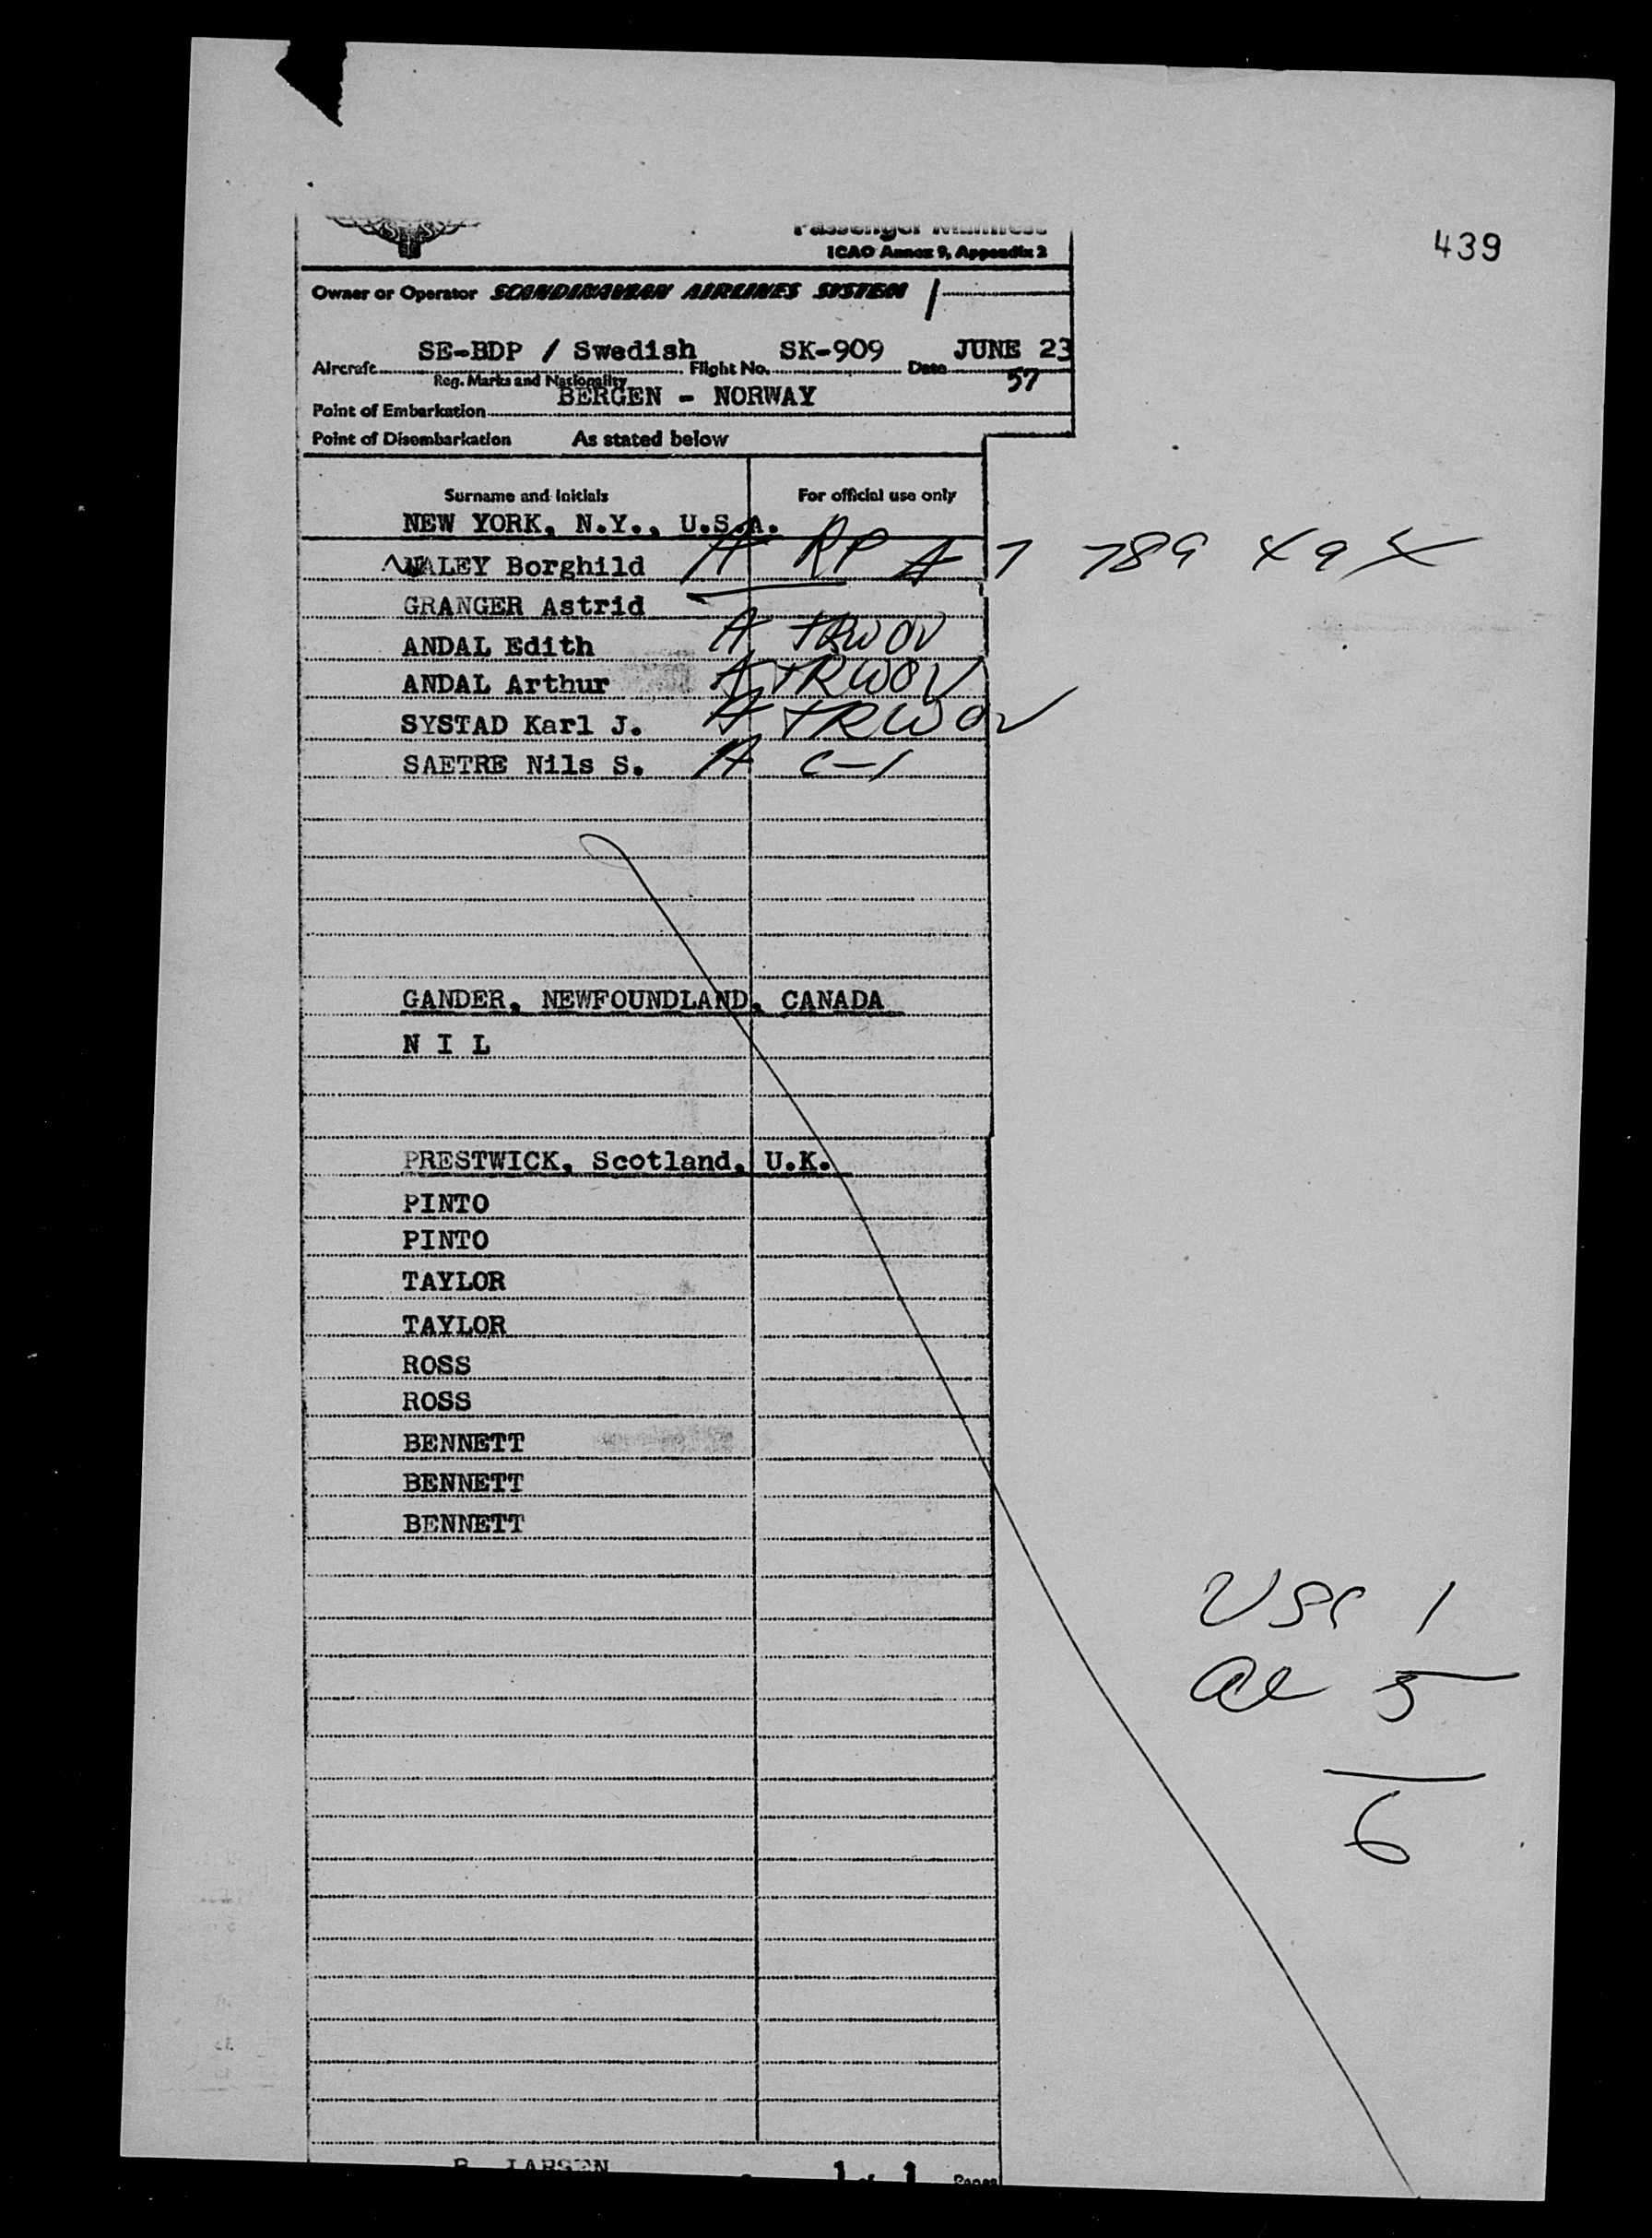 439
Passenger Manifest
ICAO Annex 9, Appendix 2
Owner or Operator SCANDINAVIAN AIRLINES SYSTEM
Aircraft SE-BDP / Swedish Flight No. SK-909 Date JUNE 23
Reg. Marks and Nationality 57
Point of Embarkation BERGEN - NORWAY
Point of Disembarkation As stated below
Surname and Initials For official use only
NEW YORK, N.Y., U.S.A.
Borghild A RP A 7 789
GRANGER Astrid
ANDAL Edith A TRWOV
ANDAL Arthur A TRWOV
SYSTAD Karl J. A TRWOV
SAETRE Nils S. A C-1
GANDER, NEWFOUNDLAND, CANADA
N I L
PRESTWICK, Scotland, U.K.
PINTO
PINTO
TAYLOR
TAYLOR
ROSS
ROSS
BENNETT
BENNETT
BENNETT
USC 1
al 5
6
LARSEN 1 of 1 Pages